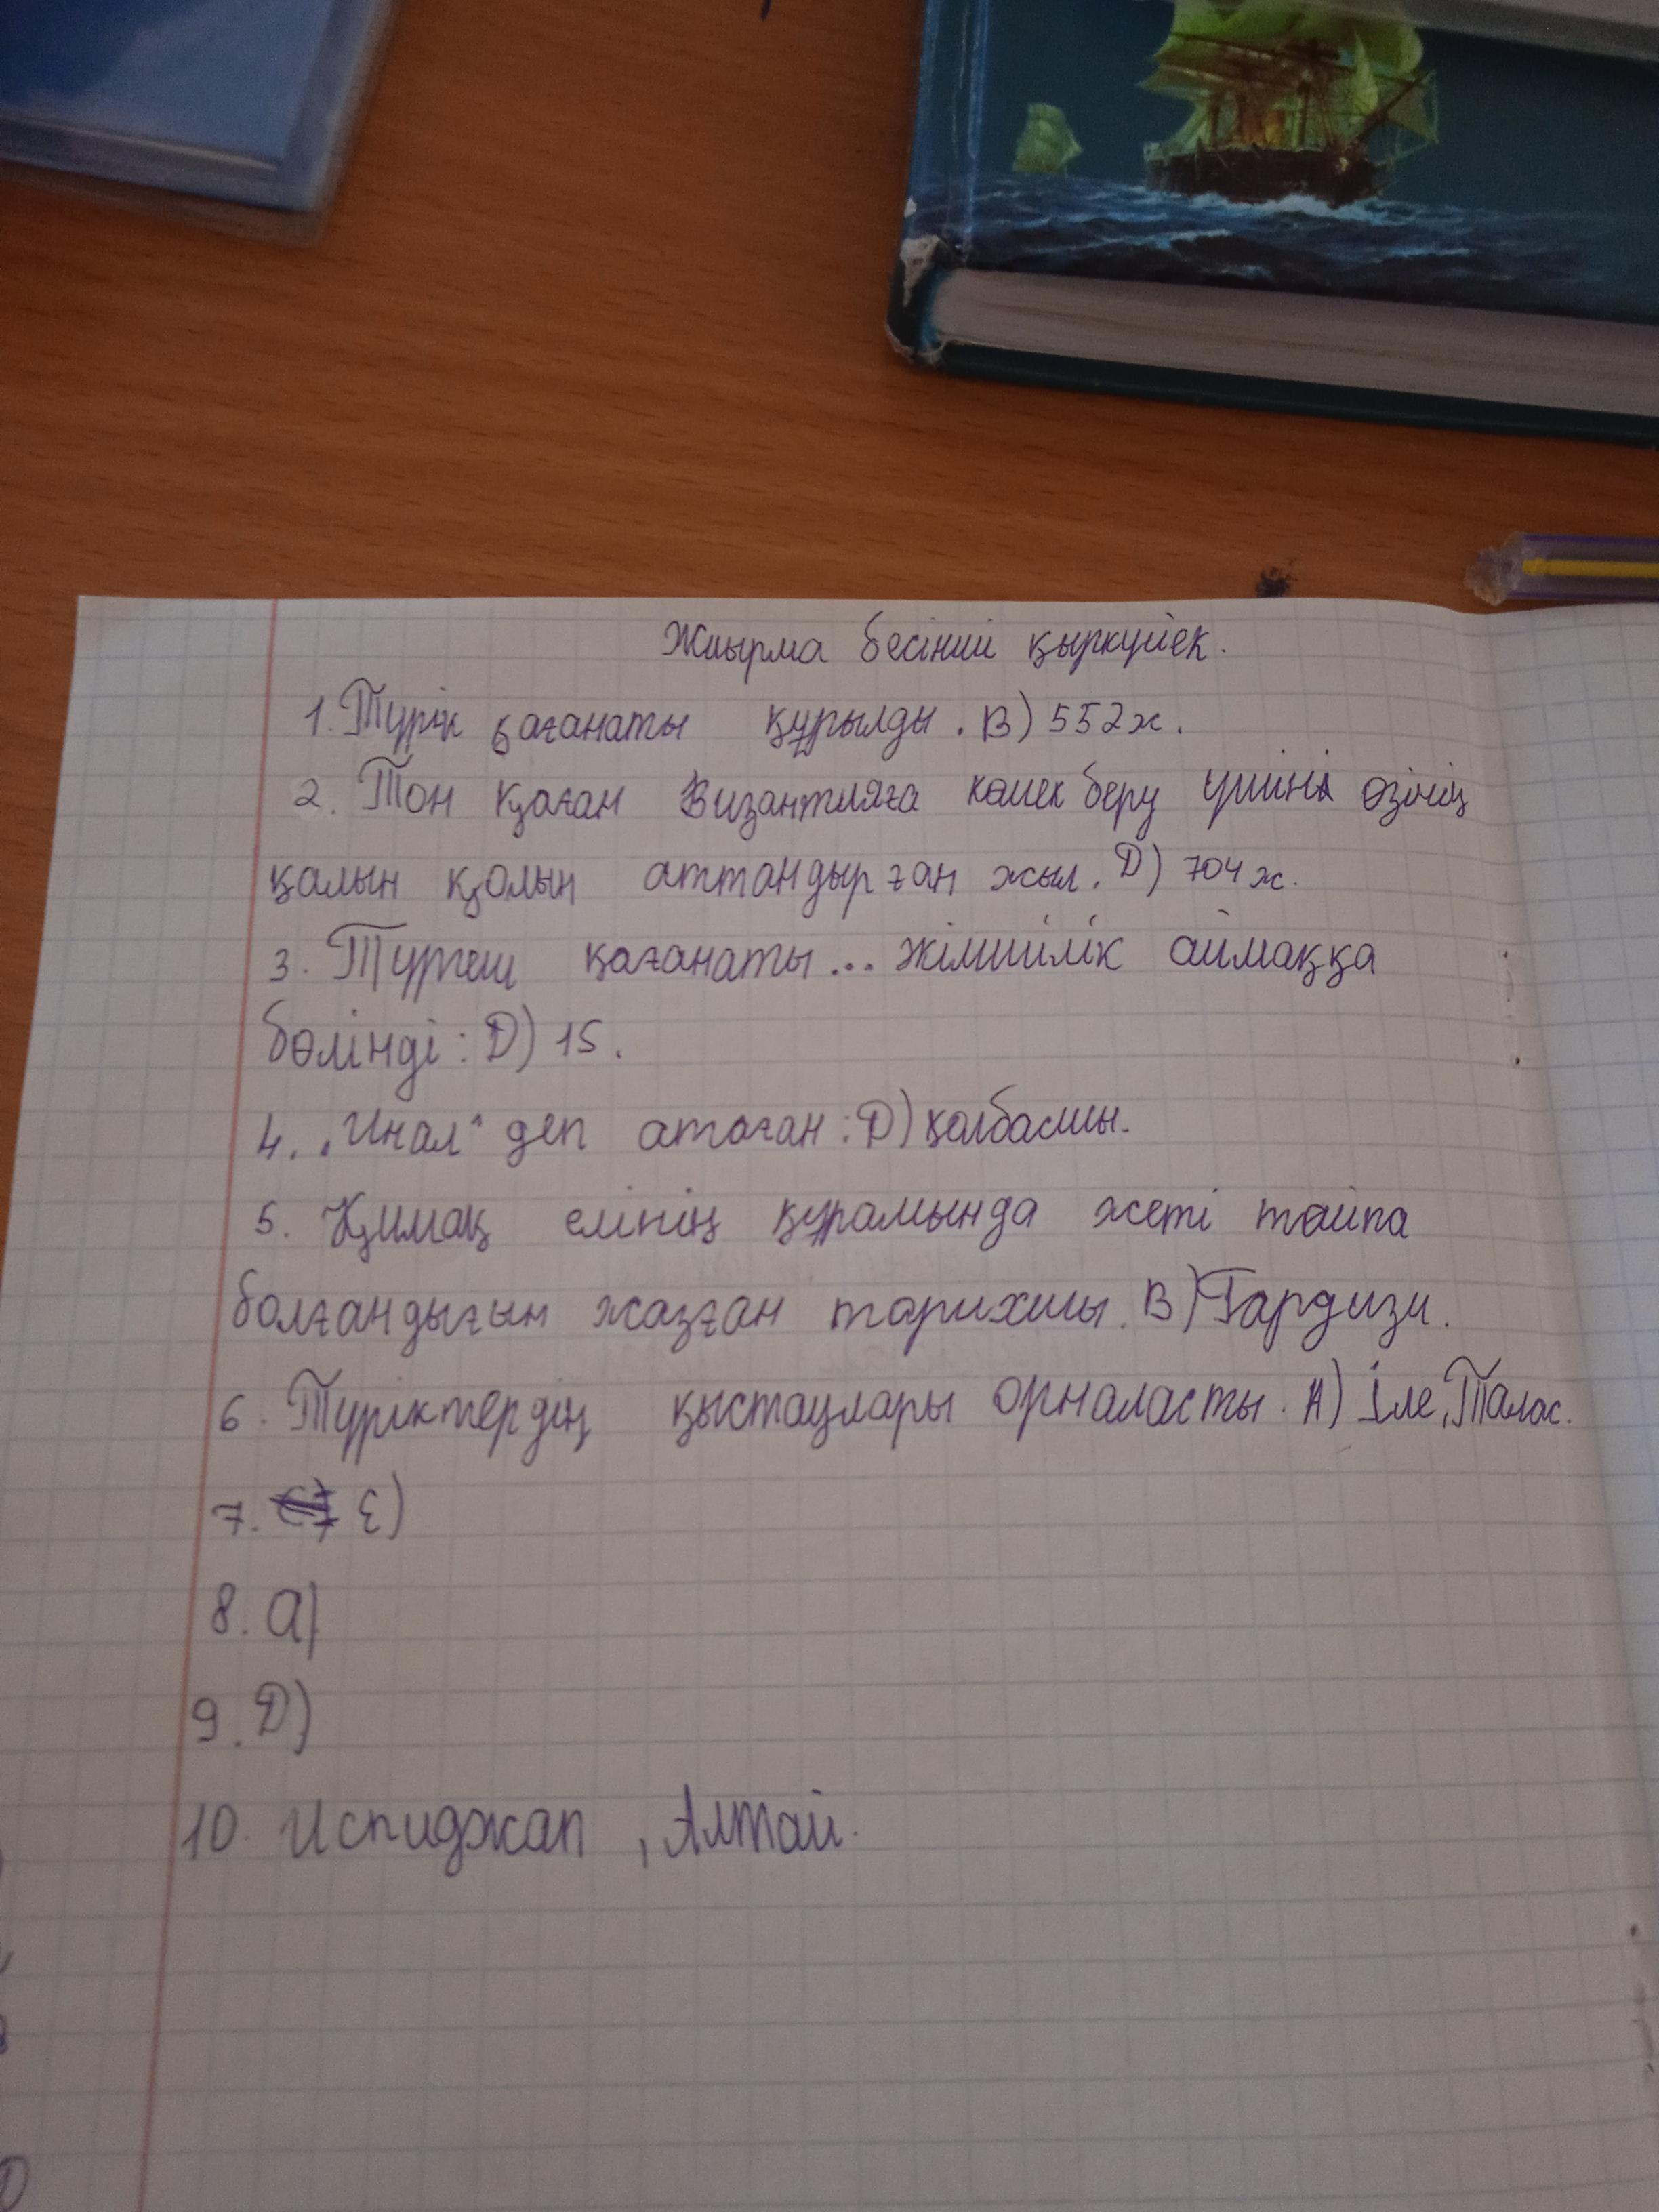 Жиырма бесінші қыркүйек.
1. Түрік қағанаты құрылды. В) 552ж.
2. Тон қаған Византияға көмек беру үшін өзінің
қалын қолын аттандырған жыл. D) 704ж.
3. Түргеш қағанаты... әкімшілік аймаққа
бөлінді: D) 15.
4. „Инал" деп атаған: D) қолбасшы.
5. Қимақ елінің құрамында жеті тайпа
болғандығын жазған тарихшы. В) Гардизи.
6. Түріктердің қыстаулары орналасты. А) Іле, Талас.
7. Е)
8. а)
9. D)
10. Испиджап, Алтай.